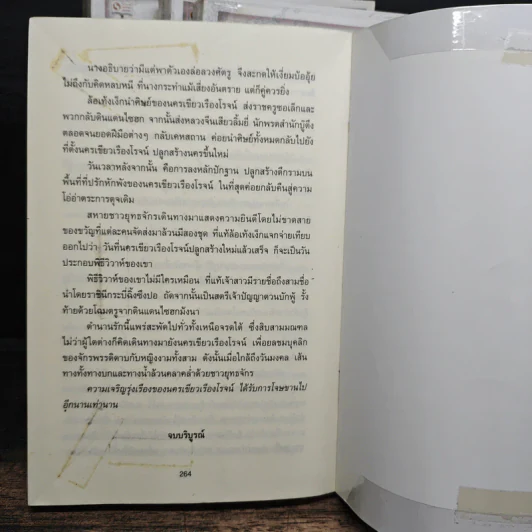 นางอธิบายว่ามีแต่พาตัวเองล่อลวงศัตรู จึงสะกดให้เงี่ยมบ้ออุ้ย
ไม่ถึงกับคิดหลบหนี ที่นางกระทำแม้เสี่ยงอันตราย แต่ก็คู่ควรยิ่ง
ล้อเท้งเง็กนำศิษย์ของนครเขียวเรืองโรจน์ ส่งราชครูซอเล็กและ
พวกกลับดินแดนไซฮก จากนั้นส่งหลวงจีนเสียวลิ้มยี่ นักพรตสำนักบู๊ตึ๊ง
ตลอดจนยอดฝีมือต่างๆ กลับเคหสถาน ค่อยนำศิษย์ทั้งหมดกลับไปยัง
ที่ตั้งนครเขียวเรืองโรจน์ ปลูกสร้างนครขึ้นใหม่
วันเวลาหลังจากนั้น คือการลงหลักปักฐาน ปลูกสร้างตึกรามบน
พื้นที่ที่ปรักหักพังของนครเขียวเรืองโรจน์ ในที่สุดค่อยกลับคืนสู่ความ
โอ่อ่าตระการดุจเดิม
สหายชาวยุทธจักรเดินทางมาแสดงความยินดีโดยไม่ขาดสาย
ของขวัญที่แต่ละคนจัดส่งมาล้วนมีสองชุด ที่แท้ล้อเท้งเง็กแจกจ่ายเทียบ
ออกไปว่า วันที่นครเขียวเรืองโรจน์ปลูกสร้างใหม่แล้วเสร็จ ก็จะเป็นวัน
ประกอบพิธีวิวาห์ของเขา
พิธีวิวาห์ของเขาไม่มีใครเหมือน ที่แท้เจ้าสาวมีรายชื่อถึงสามชื่อ
นำโดยราชินีกระบี่ฉิ้งซึงปอ ถัดจากนั้นเป็นสตรีเจ้าปัญญาตวนบักฟู้ รั้ง
ท้ายด้วยโฉมตรูจากดินแดนไซฮกมังนา
ตำนานรักนี้แพร่สะพัดไปทั่วทั้งเหนือจรดใต้ ซึ่งสิบสามมณฑล
ไม่ว่าผู้ใดต่างก็คิดเดินทางมายังนครเขียวเรืองโรจน์ เพื่อยลชมบุคลิก
ของจักรพรรดิดาบกับหญิงงามทั้งสาม ดังนั้นเมื่อใกล้ถึงวันมงคล เส้น
ทางทั้งทางบกและทางน้ำล้วนคลาคล่ำด้วยชาวยุทธจักร
ความเจริญรุ่งเรืองของนครเขียวเรืองโรจน์ ได้รับการโจษขานไป
อีกนานเท่านาน
จบบริบูรณ์
264